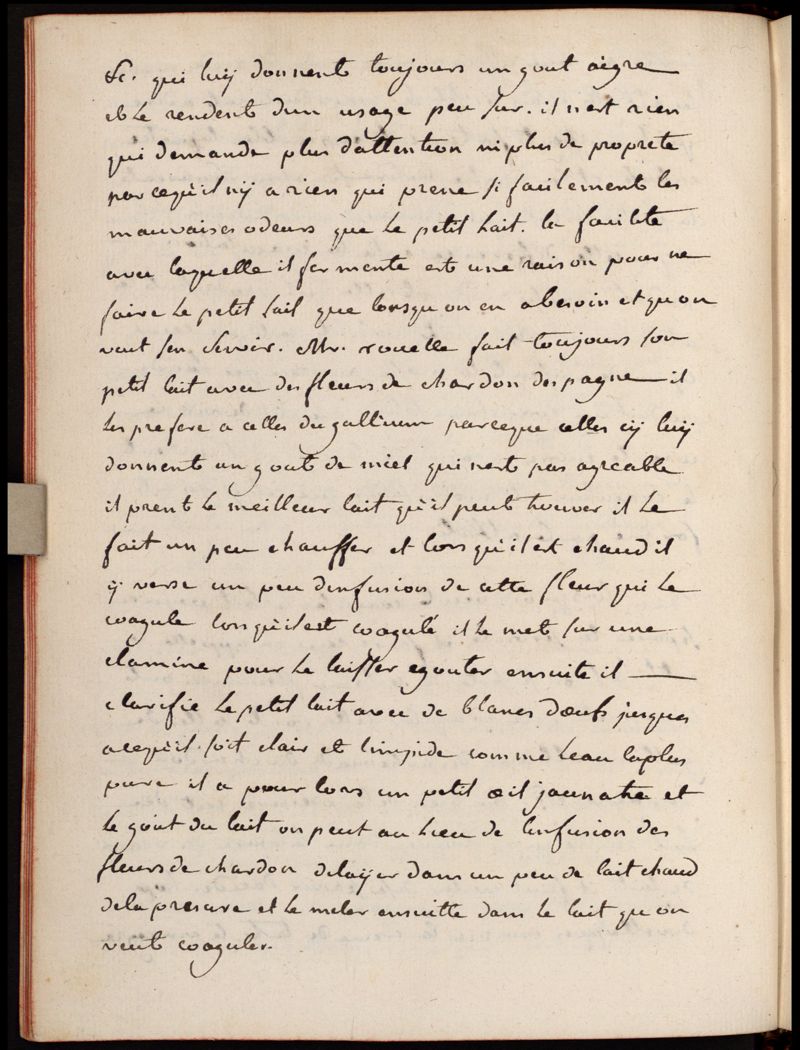 &c. qui luÿ donnent toujours un gout aigre
et le rendent d'un usage peu sur. il n'est rien
qui demande plus d'attention ni plus de proprete
parcequ'il n'ÿ a rien qui prene si facilement les
mauvaises odeurs que le petit lait. la facilité
avec laquelle il fermente est une raison pour ne
faire le petit lait que lorsqu'on en a besoin et qu'on
veut s'en servir. Mr. rouelle fait toujours son
petit lait avec des fleurs de chardon d'espagne il
les prefere a celles du gallium parceque celles cÿ luÿ
donnent un gout de miel qui n'est pas agreable
il prent le meilleur lait qu'il peut trouver il le
fait un peu chauffer et lorsqu'il est chaud il
ÿ verse un peu d'infusion de cette fleur qui le
coagule lorsqu'il est coagulé il le met sur une
etamine pour le laisser egouter ensuite il
clarifie le petit lait avec de blancs d'œufs jusques
acequ'il soit clair et limpide comme leau la plus
pure il a pour lors un petit œil jaunatre et
le goût du lait on peut au lieu de l'infusion des
fleurs de chardon delaÿer dans un peu de lait chaud
de la presure et le meler ensuitte dans le lait qu'on
veut coaguler.